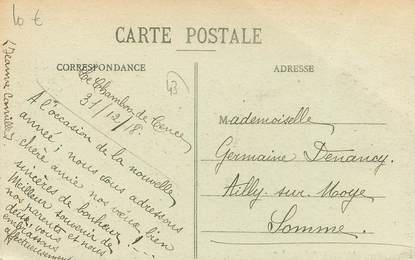 10 €
CARTE POSTALE
CORRESPONDANCE
ADRESSE
43
Chambon de Tence
31/12/18.
A l'occasion de la nouvelle
année ; nous vous adressons
chère amie nos vœux bien
sincères de bonheur !...
Meilleur souvenir de
nos parents et nous
deux, vous
embrassons
affectueusement
(Jeanne Camille)
Mademoiselle
Germaine Denancy
Ailly-sur-Noye
Somme.